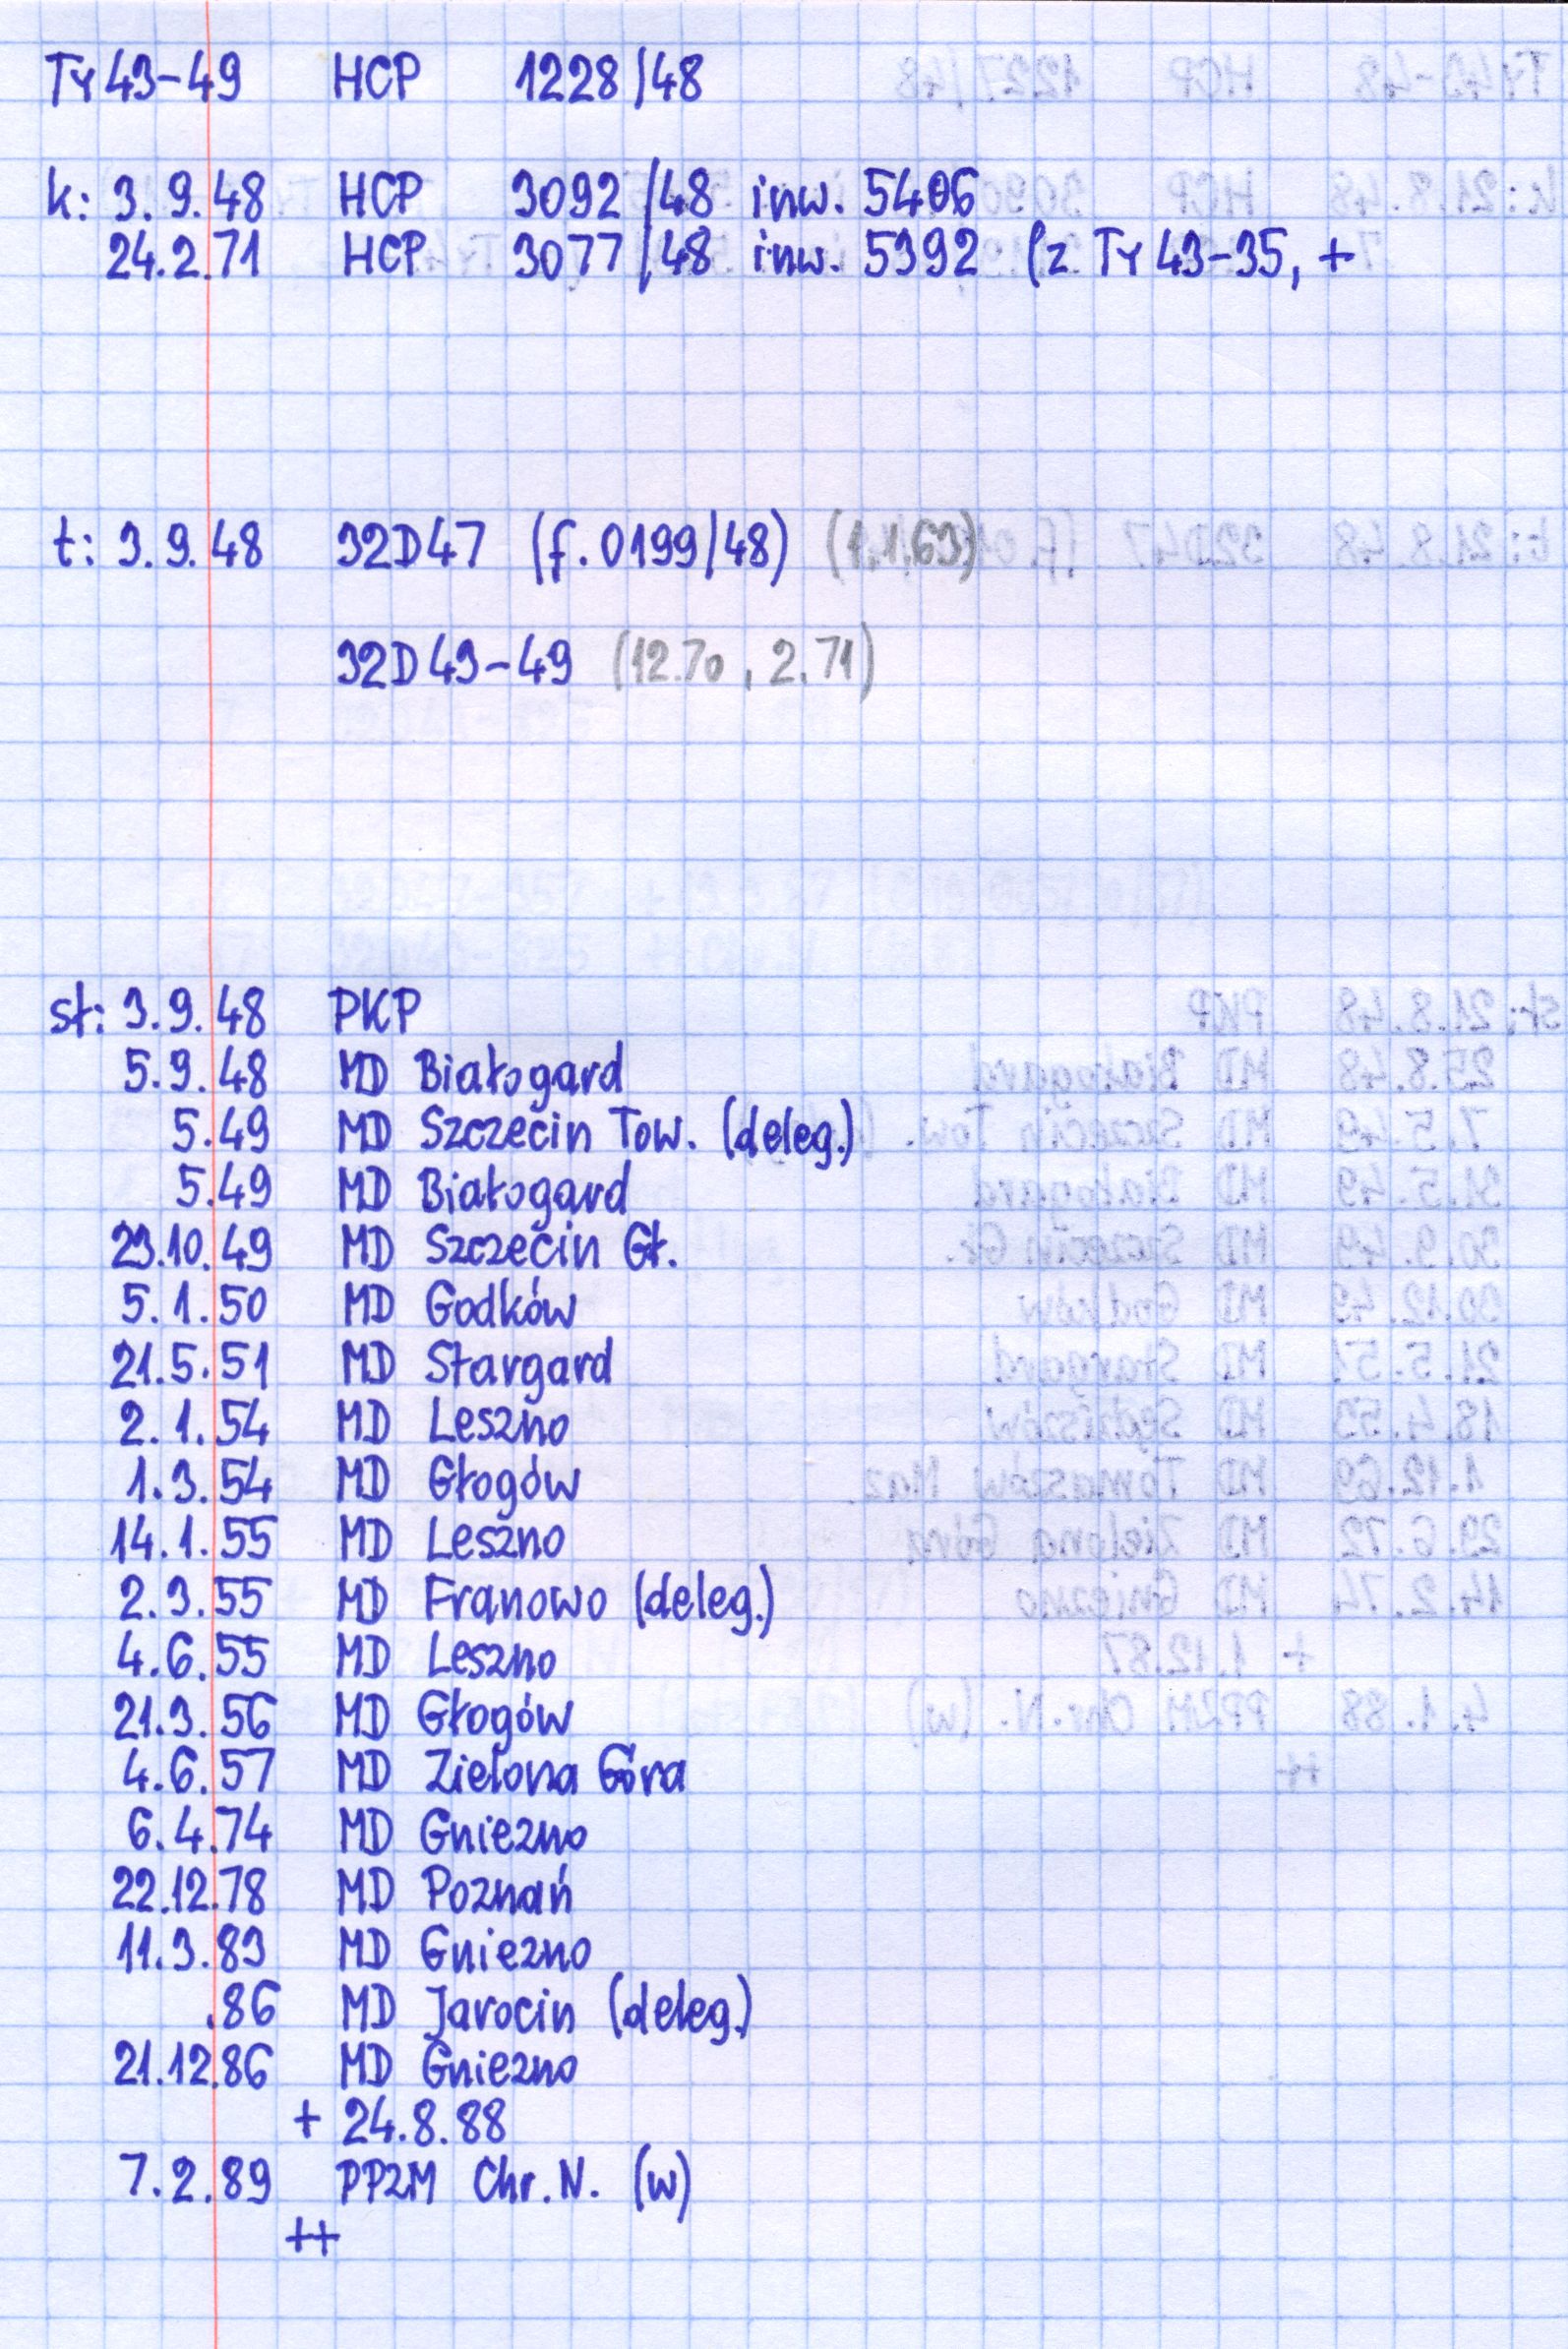 Ty43-49 HCP 1228/48
k: 3.9.48 HCP 3092/48 inw. 5406
24.2.71 HCP 3077/48 inw. 5392 (z Ty43-35, +
t: 3.9.48 32D47 (f.0199/48) (1.1.63)
32D43-49 (12.70, 2.71)
st: 3.9.48 PKP
5.9.48 MD Białogard
5.49 MD Szczecin Tow. (deleg.)
5.49 MD Białogard
23.10.49 MD Szczecin Gł.
5.1.50 MD Godków
21.5.51 MD Stargard
2.1.54 MD Leszno
1.3.54 MD Głogów
14.1.55 MD Leszno
2.3.55 MD Franowo (deleg.)
4.6.55 MD Leszno
21.3.56 MD Głogów
4.6.57 MD Zielona Góra
6.4.74 MD Gniezno
22.12.78 MD Poznań
11.3.83 MD Gniezno
.86 MD Jarocin (deleg.)
21.12.86 MD Gniezno
+ 24.8.88
7.2.89 PPZM Chr.N. (w)
++